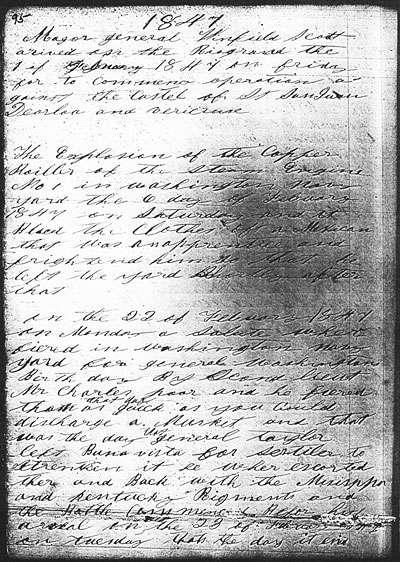 95
1847
Major general Winfield Scott
arived on the Riogrand the
1 of 1847 on friday
for to commence operation a
gainst the Castel of St Jan Juan
Dearloa and vericruse
The Explosion of the Copper
Boiller of the Steam Engine
No 1 in washington Navy
yard the 6 day of Februery
1847 on Saturday and it
the Clothes off a Mexican
that was an apprentice and
frightend him so that he
left the yard after
that
on the 22 of Februery 1847
on Monday a Salute wher
fiered in washington navy
yard for general washington
Birth day By Second Lieut
Mr Charles poor and he fiered
them as that gun quick as you could
discharge a Musket and that
was the day the general taylor
left Bunavista for
it he wher escorted
ther and Back with the Missippi
and kentucky Rigments and
the Battle Commence Before his
arival on the 23 of
on tuesday that the day it